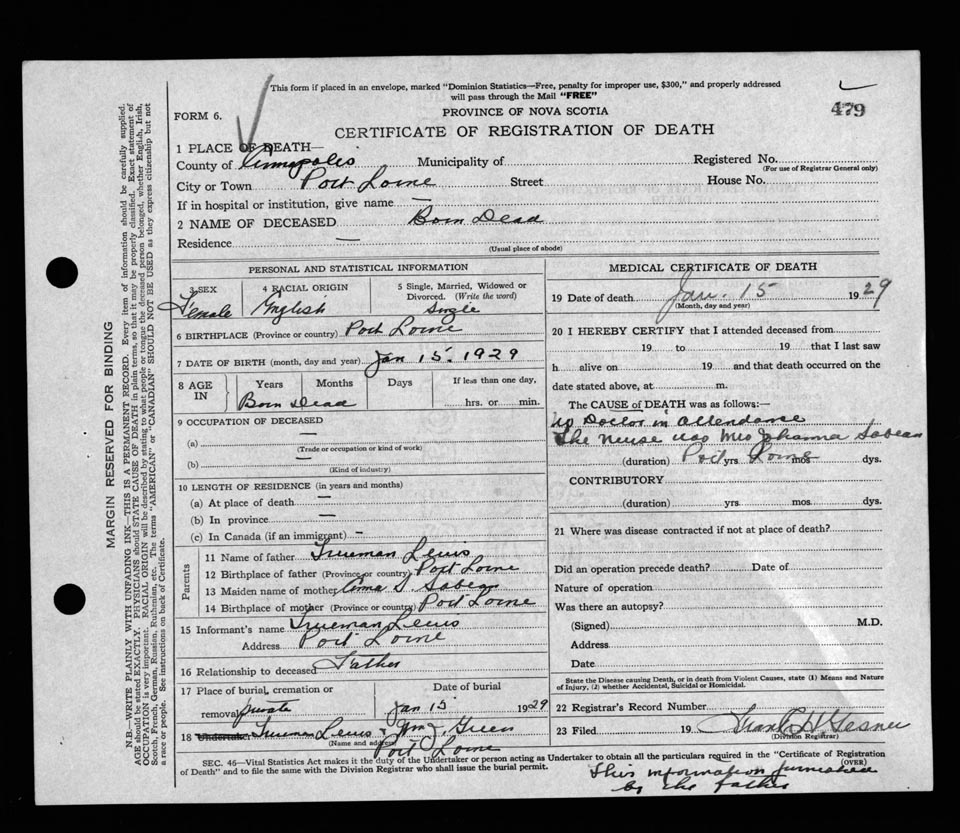 This form if placed in an envelope, marked "Dominion Statistics—Free, penalty for improper use, $300," and properly addressed
will pass through the Mail "FREE"
479
FORM 6.
PROVINCE OF NOVA SCOTIA
CERTIFICATE OF REGISTRATION OF DEATH
1 PLACE OF DEATH—
County of Annapolis Municipality of Registered No.
(For use of Registrar General only)
City or Town Port Lorne Street House No.
If in hospital or institution, give name —
2 NAME OF DECEASED Born Dead
Residence —
(Usual place of abode)
PERSONAL AND STATISTICAL INFORMATION
3 SEX Female
4 RACIAL ORIGIN English
5 Single, Married, Widowed or Divorced. (Write the word) Single
6 BIRTHPLACE (Province or country) Port Lorne
7 DATE OF BIRTH (month, day and year) Jan 15. 1929
8 AGE IN Years Months Days If less than one day,
Born Dead hrs. or min.
9 OCCUPATION OF DECEASED
(a) —
(Trade or occupation or kind of work)
(b) —
(Kind of industry)
10 LENGTH OF RESIDENCE (in years and months)
(a) At place of death —
(b) In province —
(c) In Canada (if an immigrant) —
Parents
11 Name of father Trueman Lewis
12 Birthplace of father (Province or country) Port Lorne
13 Maiden name of mother S. Sabean
14 Birthplace of mother (Province or country) Port Lorne
15 Informant's name Trueman Lewis
Address Port Lorne
16 Relationship to deceased Father
17 Place of burial, cremation or removal private
Date of burial Jan 15 1929
18 Undertaker Trueman Lewis & Wm J. Green
(Name and address)
Port Lorne
MEDICAL CERTIFICATE OF DEATH
19 Date of death Jan. 15 1929
(Month, day and year)
20 I HEREBY CERTIFY that I attended deceased from
19 to 19 that I last saw
h alive on 19 and that death occurred on the
date stated above, at m.
The CAUSE of DEATH was as follows:—
No Doctor in attendance
The Nurse was Mrs Johanna Sabean
(duration) Port yrs. Lorne mos. dys.
CONTRIBUTORY
(duration) yrs. mos. dys.
21 Where was disease contracted if not at place of death?
Did an operation precede death? Date of
Nature of operation
Was there an autopsy?
(Signed) M.D.
Address
Date
State the Disease causing Death, or in death from Violent Causes, state (1) Means and Nature
of Injury, (2) whether Accidental, Suicidal or Homicidal.
22 Registrar's Record Number
23 Filed 19 Frank H Gesner
(Division Registrar)
(OVER)
SEC. 46—Vital Statistics Act makes it the duty of the Undertaker or person acting as Undertaker to obtain all the particulars required in the "Certificate of Registration
of Death" and to file the same with the Division Registrar who shall issue the burial permit.
This information furnished
by the father
MARGIN RESERVED FOR BINDING
N.B.—WRITE PLAINLY WITH UNFADING INK—THIS IS A PERMANENT RECORD. Every item of information should be carefully supplied.
AGE should be stated EXACTLY. PHYSICIANS should STATE CAUSE OF DEATH in plain terms, so that it may be properly classified. Exact statement of
OCCUPATION is very important. RACIAL ORIGIN will be described by stating to what people or tongue the deceased person belonged, whether English, Irish,
Scotch, French, German, Russian, Ruthenian, etc. The terms "AMERICAN" or "CANADIAN" SHOULD NOT BE USED as they express citizenship but not
a race or people. See instructions on back of Certificate.